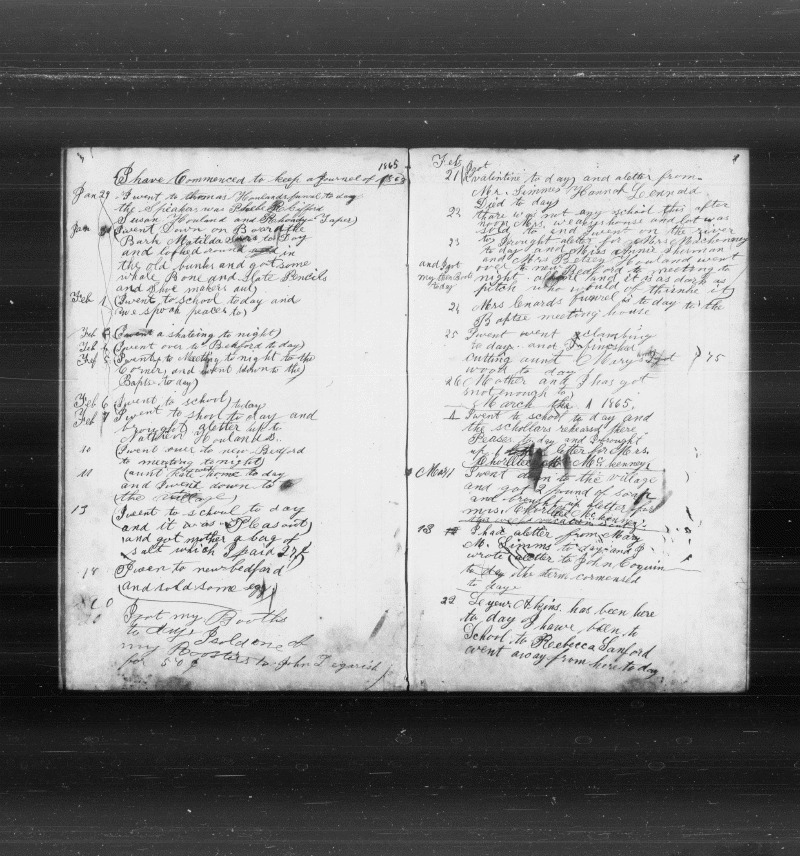 1865
I have Commenced to keep a Journel of 1865
Jan 29 I went to thomas Howlands funel to day
the Speaker was
Susan Howland and
Jan I went Down on Board the
Bark Matilda Sears to Day
and looked round and in
the old bunks and got some
whale Bone and Slate Pencils
and Shoe makers awl
Feb 1 I went to school to day and
we spoke peaces to
Feb I went a skateing to night
Feb I went over to Bedford to day
Feb 5 I went to Meeting to night to the
Corner and went down to the
Baptis to day
Feb 6 I went to school to day
Feb 7 I went to shool to day and
brought aletter up to
Howlands.
10 I went over to new Bedford
to meeting to night
11 aunt Kate home to day
and I went down to
the village
13 I went to school to day
and it was Pleasant
and got mother a bag of
salt which I paid 27¢
18 I wen to new bedford
and sold some eggs
I got my Booths
to day I sold one of
my Roosters to John
for 50¢
Feb
21 I got valentine to day and aletter from
Mr. Simmes Hannah Lennard
Died to day
22 there was not any school this after
noon Mrs. house and lot was
sold to and went on the river
23 to brought aletter for Mrs Mackenney
to day and Miss Anner Sherman
and Mrs Betsey Howland went
and I got over to new Bedford to meeting to
my night and it is as dark as
to day pitch who would of thrinke it
24 Mrs Lenards funel is to day to the
Baptis meeting house
25 I went went a clambing
to day and I
cutting aunt Marys
wood to day 75
26 Mother and I has got
not enough to
March the 1 1865.
1 I went to school to day and
the schollars rehersed there
Peases to day and I brought
up aletter for Mrs.
Charlotte Mckenney
Mar 11 I went down to the village
and got 2 pound of soap
and brought aletter for
mrs. Charlotte Mckenney
this week vacation
13 I had aletter from Mary
M. Simms to day and I
wrote aletter to John Coquin
to day the term commensed
to day
22 Seyeur Akins has been here
to day I have been to
School to Reebecca Sanford
went away from here to day